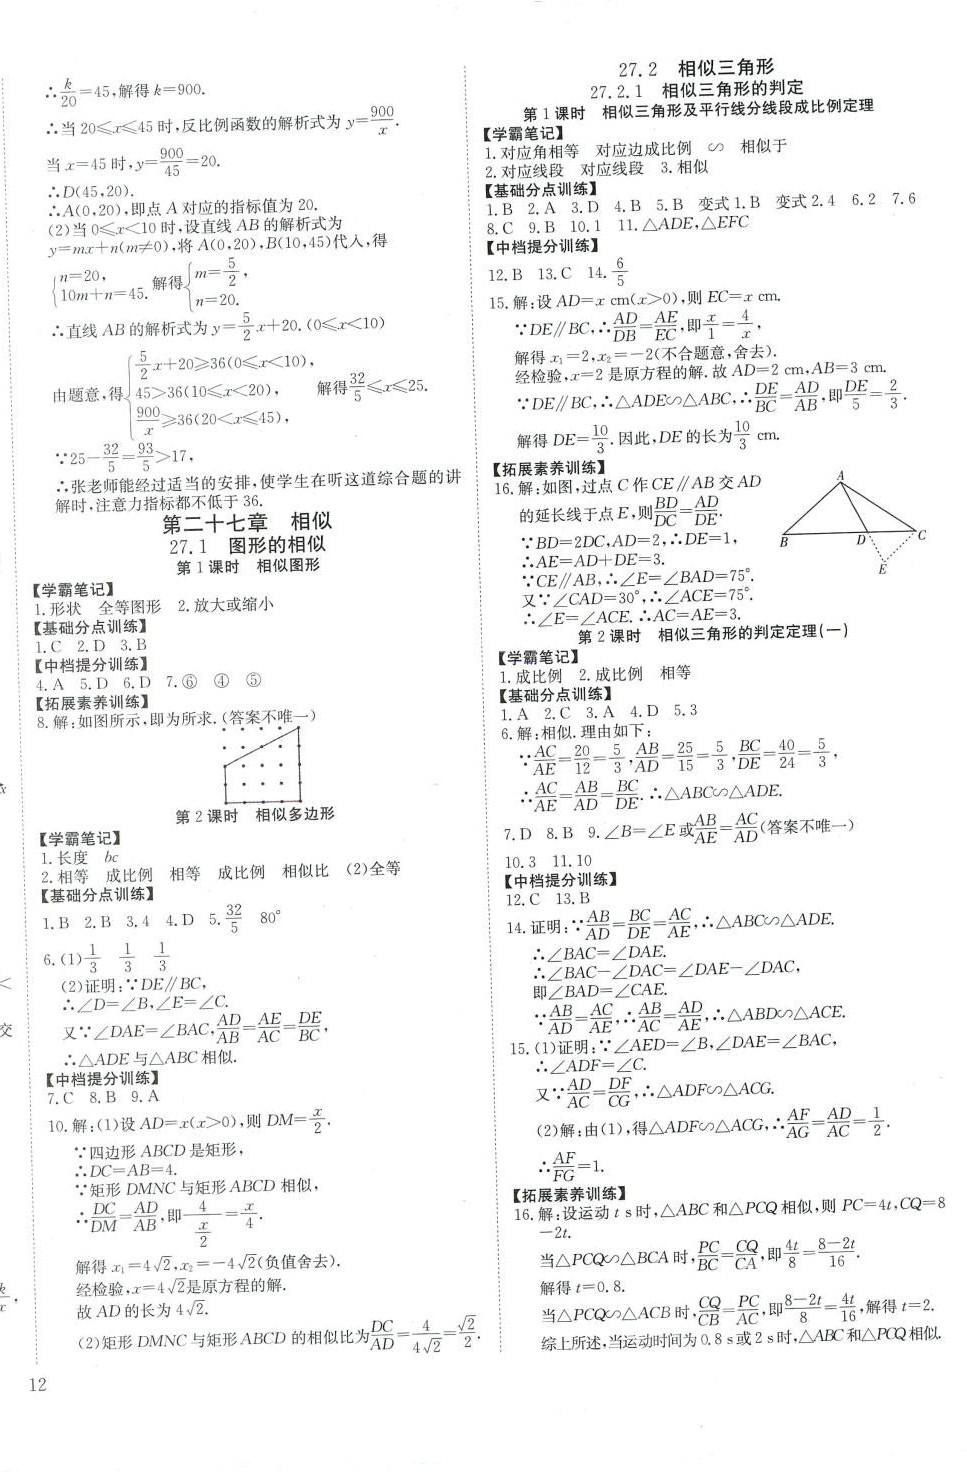 ∴k/20=45,解得k=900.
∴当20≤x≤45时,反比例函数的解析式为y=900/x.
当x=45时,y=900/45=20.
∴D(45,20).
∴A(0,20),即点A对应的指标值为20.
(2)当0≤x<10时,设直线AB的解析式为
y=mx+n(m≠0),将A(0,20),B(10,45)代入,得
{n=20, 10m+n=45. 解得{m=5/2, n=20.
∴直线AB的解析式为y=5/2x+20.(0≤x<10)
由题意,得{5/2x+20≥36(0≤x<10), 45>36(10≤x<20), 900/x≥36(20<x≤45), 解得32/5≤x≤25.
∵25-32/5=93/5>17,
∴张老师能经过适当的安排,使学生在听这道综合题的讲
解时,注意力指标都不低于36.
第二十七章 相似
27.1 图形的相似
第1课时 相似图形
【学霸笔记】
1.形状 全等图形 2.放大或缩小
【基础分点训练】
1.C 2.D 3.B
【中档提分训练】
4.A 5.D 6.D 7.⑥ ④ ⑤
【拓展素养训练】
8.解:如图所示,即为所求.(答案不唯一)
第2课时 相似多边形
【学霸笔记】
1.长度 bc
2.相等 成比例 相等 成比例 相似比 (2)全等
【基础分点训练】
1.B 2.B 3.4 4.D 5.32/5 80°
6.(1)1/3 1/3 1/3
(2)证明:∵DE∥BC,
∴∠D=∠B,∠E=∠C.
又∵∠DAE=∠BAC,AD/AB=AE/AC=DE/BC,
∴△ADE与△ABC相似.
【中档提分训练】
7.C 8.B 9.A
10.解:(1)设AD=x(x>0),则DM=x/2.
∵四边形ABCD是矩形,
∴DC=AB=4.
∵矩形DMNC与矩形ABCD相似,
∴DC/DM=AD/AB,即4/(x/2)=x/4.
解得x₁=4√2,x₂=-4√2(负值舍去).
经检验,x=4√2是原方程的解.
故AD的长为4√2.
(2)矩形DMNC与矩形ABCD的相似比为DC/AD=4/4√2=√2/2.
12
27.2 相似三角形
27.2.1 相似三角形的判定
第1课时 相似三角形及平行线分线段成比例定理
【学霸笔记】
1.对应角相等 对应边成比例 ∽ 相似于
2.对应线段 对应线段 3.相似
【基础分点训练】
1.B 2.A 3.D 4.B 5.B 变式1.B 变式2.4 6.2 7.6
8.C 9.B 10.1 11.△ADE,△EFC
【中档提分训练】
12.B 13.C 14.6/5
15.解:设AD=x cm(x>0),则EC=x cm.
∵DE∥BC,∴AD/DB=AE/EC,即x/1=4/x,
解得x₁=2,x₂=-2(不合题意,舍去).
经检验,x=2是原方程的解.故AD=2 cm,AB=3 cm.
∵DE∥BC,∴△ADE∽△ABC,∴DE/BC=AD/AB,即DE/5=2/3.
解得DE=10/3.因此,DE的长为10/3 cm.
【拓展素养训练】
16.解:如图,过点C作CE∥AB交AD
的延长线于点E,则BD/DC=AD/DE.
∵BD=2DC,AD=2,∴DE=1,
∴AE=AD+DE=3.
∵CE∥AB,∴∠E=∠BAD=75°.
又∵∠CAD=30°,∴∠ACE=75°.
∴∠E=∠ACE.∴AC=AE=3.
A
B
D
C
E
第2课时 相似三角形的判定定理(一)
【学霸笔记】
1.成比例 2.成比例 相等
【基础分点训练】
1.A 2.C 3.A 4.D 5.3
6.解:相似.理由如下:
∵AC/AE=20/12=5/3,AB/AD=25/15=5/3,BC/DE=40/24=5/3,
∴AC/AE=AB/AD=BC/DE.∴△ABC∽△ADE.
7.D 8.B 9.∠B=∠E或AB/AE=AC/AD(答案不唯一)
10.3 11.10
【中档提分训练】
12.C 13.B
14.证明:∵AB/AD=BC/DE=AC/AE,∴△ABC∽△ADE.
∴∠BAC=∠DAE.
∴∠BAC-∠DAC=∠DAE-∠DAC,
即∠BAD=∠CAE.
∵AB/AD=AC/AE,∴AB/AC=AD/AE,∴△ABD∽△ACE.
15.(1)证明:∵∠AED=∠B,∠DAE=∠BAC,
∴∠ADF=∠C.
又∵AD/AC=DF/CG,∴△ADF∽△ACG.
(2)解:由(1),得△ADF∽△ACG,∴AF/AG=AD/AC=1/2.
∴AF/FG=1.
【拓展素养训练】
16.解:设运动t s时,△ABC和△PCQ相似,则PC=4t,CQ=8
-2t.
当△PCQ∽△BCA时,PC/BC=CQ/CA,即4t/8=8-2t/16.
解得t=0.8.
当△PCQ∽△ACB时,CQ/CB=PC/AC,即8-2t/8=4t/16,解得t=2.
综上所述,当运动时间为0.8 s或2 s时,△ABC和△PCQ相似.